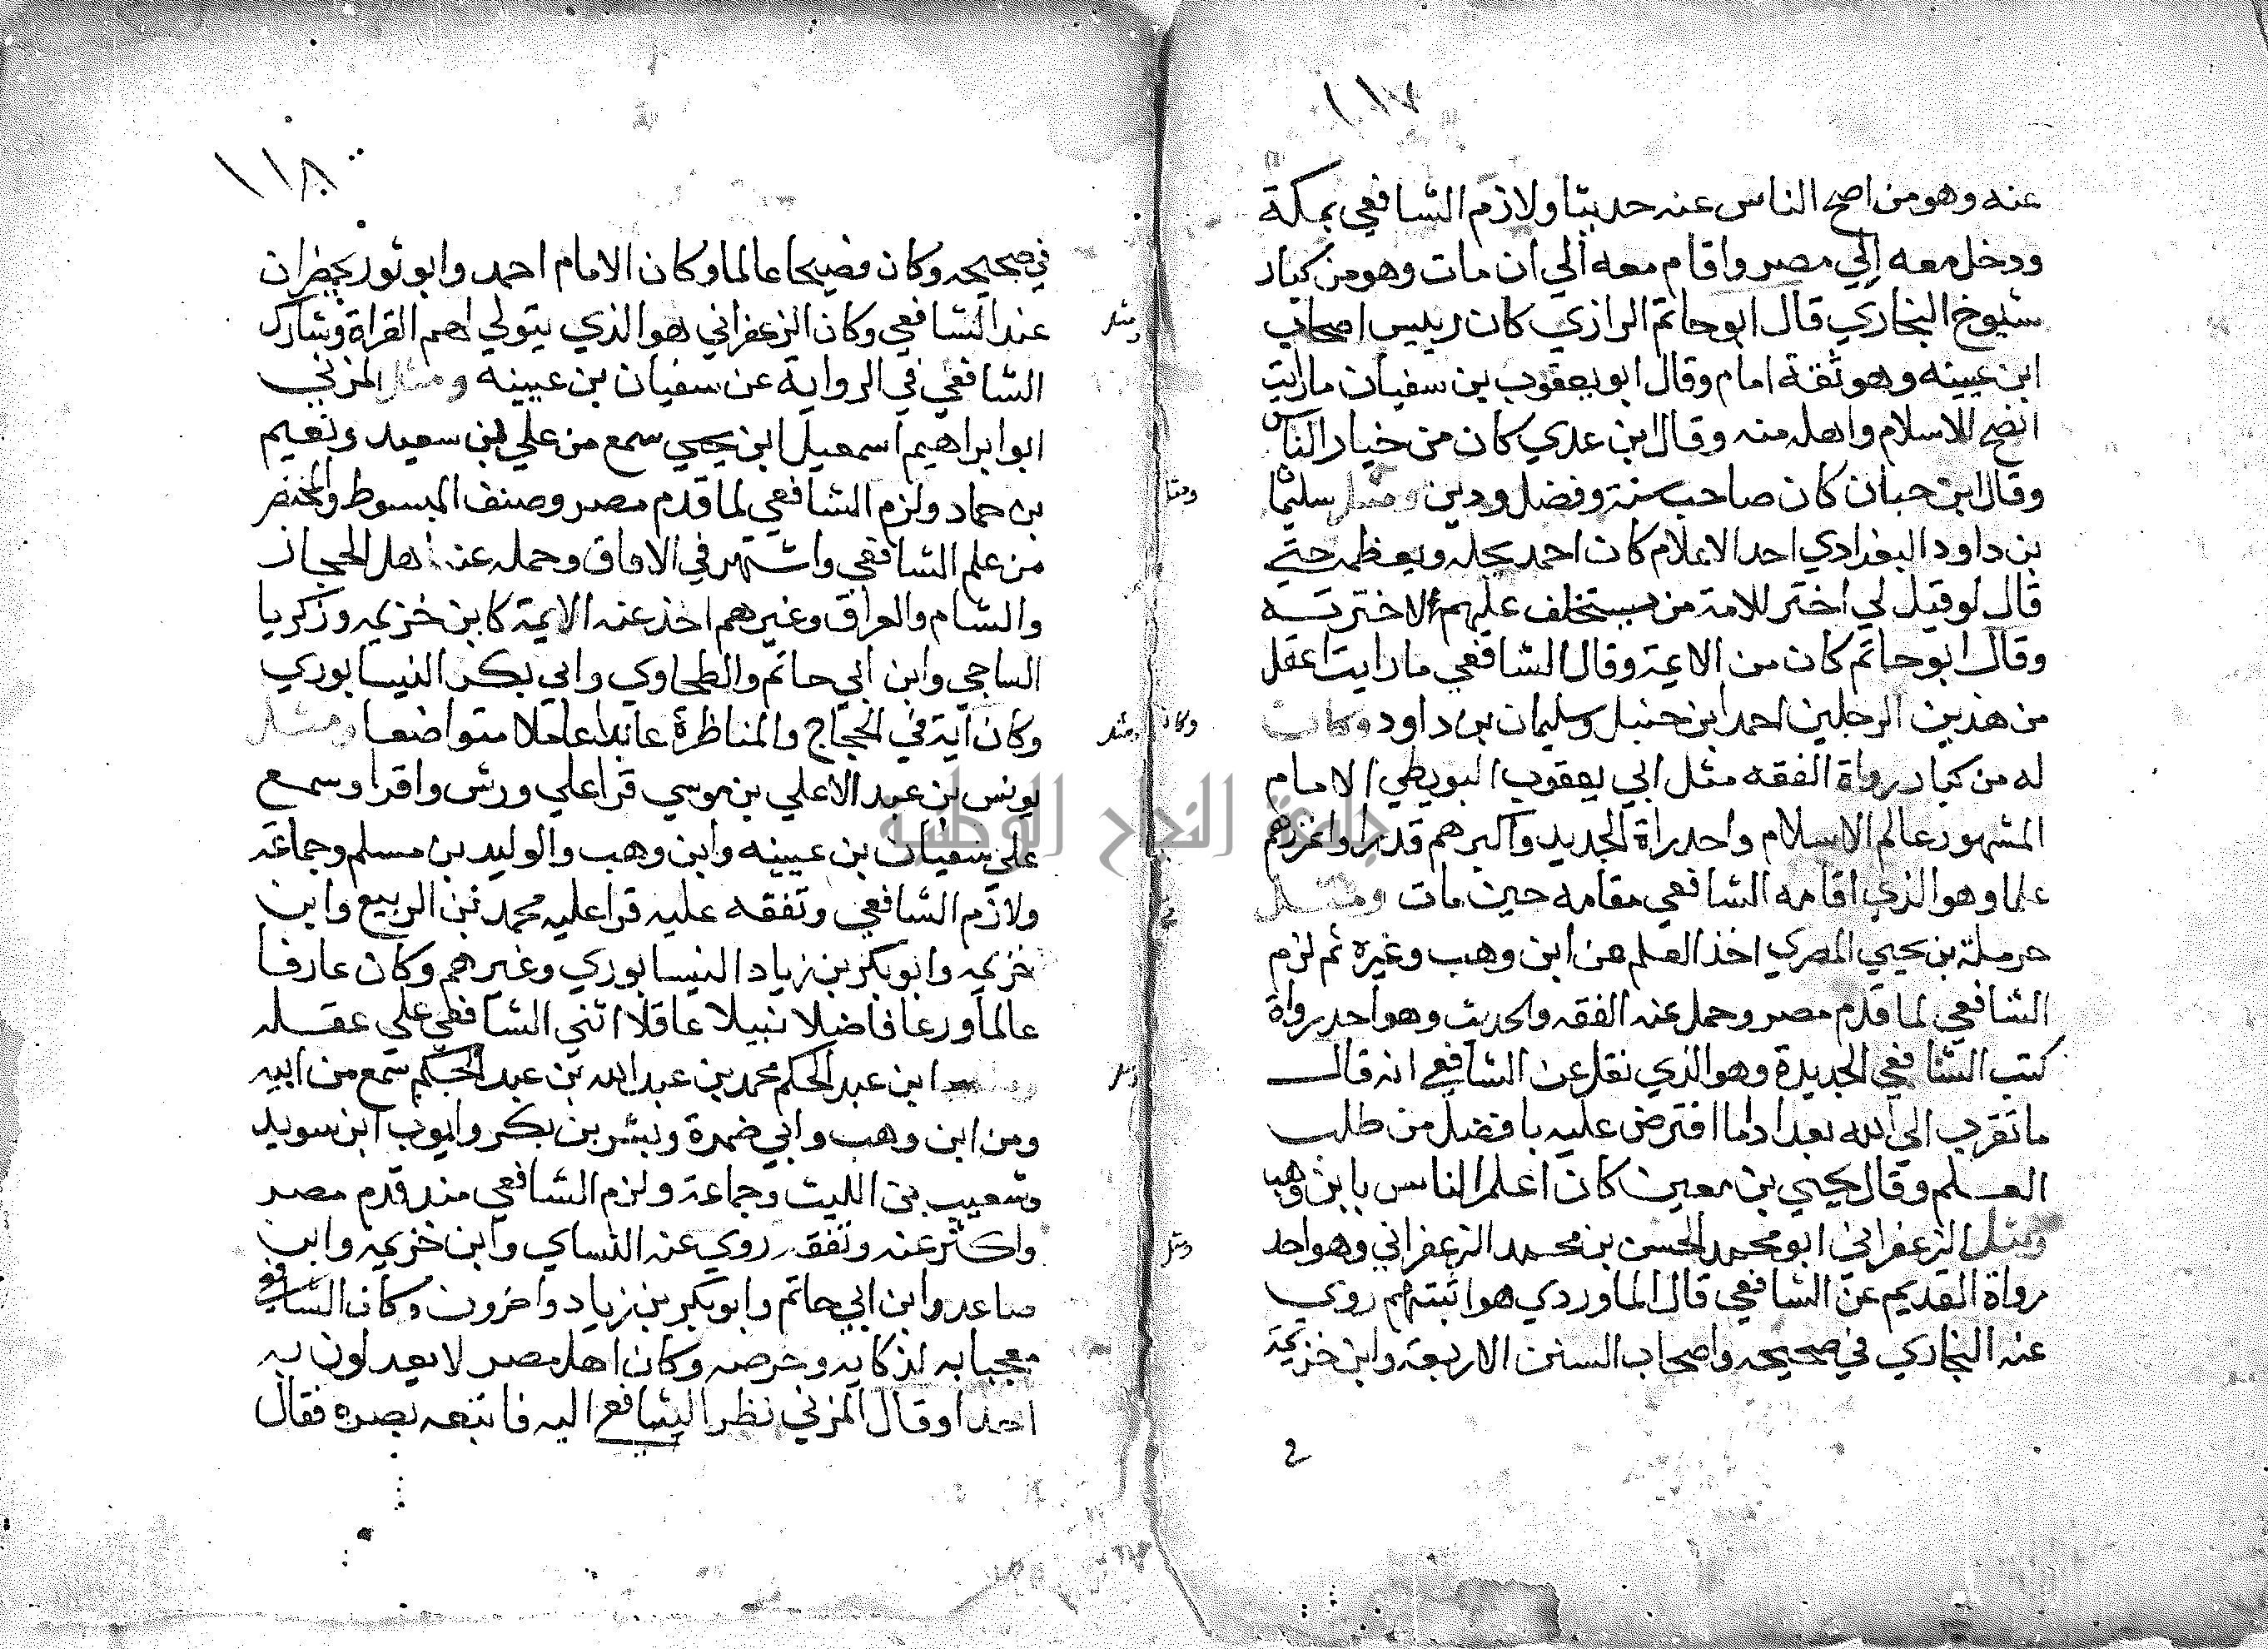 ١١٧
عنه وهو من اصح الناس عنه حديثا ولازم الشافعي بمكة
ودخل معه إلي مصر واقام معه الي ان مات وهو من كبار
شيوخ البخاري قال ابو حاتم الرازي كان رييس اصحاب
ابن عيينه وهو ثقة امام وقال ابو يعقوب بن سفيان ما رايت
انصح للاسلام واهله منه وقال ابن عدي كان من خيار الناس
وقال ابن حبان كان صاحب سنة وفضل ودين ومثل سليمان
بن داود البغدادي احد الاعلام كان احمد يجله ويعظمه حتي
قال لو قيل لي اختر للامة من يستخلف عليهم لاخترته
وقال ابو حاتم كان من الايمة وقال الشافعي ما رايت اعقل
من هذين الرجلين احمد ابن حنبل وسليمان بن داود وكانت
له من كبار رواة الفقه مثل ابي يعقوب البويطي الامام
المشهور عالم الاسلام واحد راة الجديد واكبرهم قدرا واغزرهم
علما وهو الذي اقامه الشافعي مقامه حين مات ومثل
حرملة بن يحيي المصري اخذ العلم عن ابن وهب وغيره ثم لزم
الشافعي لما قدم مصر وحمل عنه الفقه والحديث وهو احد رواة
كتب الشافعي الجديدة وهو الذي نقل عن الشافعي انه قال
ما تقرب الي الله بعد اداما افترض عليه بافضل من طلب
العلم وقال يحيي بن معين كان اعلم الناس بابن وهب
ومثل الزعفراني ابو محمد الحسن بن محمد الزعفراني وهو احد
رواة القديم عن الشافعي قال الماوردي هو اثبتهم روي
عنه البخاري في صحيحه واصحاب السنن الاربعة وابن خزيمة
١١٨
في صحيحه وكان فصيحا عالما وكان الامام احمد وابو ثور يحضران
عند الشافعي وكان الزعفراني هو الذي يتولي لهم القراة وشارك
الشافعي في الرواية عن سفيان بن عيينه ومثل المزني
ابو ابراهيم اسمعيل ابن يحيي سمع من علي بن سعيد ونعيم
بن حماد ولزم الشافعي لما قدم مصر وصنف المبسوط والمختصر
من علم الشافعي واشتهر في الافاق وحمله عنه اهل الحجاز
والشام والعراق وغيرهم اخذ عنه الايمة كابن خزيمه وزكريا
الساجي وابن ابي حاتم والطحاوي وابي بكر النيسابوري
وكان آية في الحجاج والمناظرة عابدا عاملا متواضعا ومثل
يونس بن عبد الاعلي بن موسي قرا علي ورش واقرا وسمع
علي سفيان بن عيينه وابن وهب والوليد بن مسلم وجماعة
ولازم الشافعي وتفقه عليه قرا عليه محمد بن الربيع وابن
خزيمه وابو بكر بن زياد النيسابوري وغيرهم وكان عارفا
عالما ورعا فاضلا نبيلا عاقلا اثني الشافعي علي عقله
ومثل ابن عبد الحكم محمد بن عبد الله بن عبد الحكم سمع من ابيه
ومن ابن وهب وابي ضمرة وبشر بن بكر وايوب ابن سويد
وشعيب بن الليث وجماعة ولزم الشافعي منذ قدم مصر
واكثر عنه وتفقه روي عنه النساي وابن خزيمه وابن
صاعد وابن ابي حاتم وابو بكر بن زياد واخرون وكان الشافعي
معجبا به لذكايه وحرصه وكان اهل مصر لا يعدلون به
احدا وقال المزني نظر الشافعي اليه فاتبعه بصره فقال
ومثل
ومثل
وكان
ومثل
ومثل
جامعة النجاح الوطنية